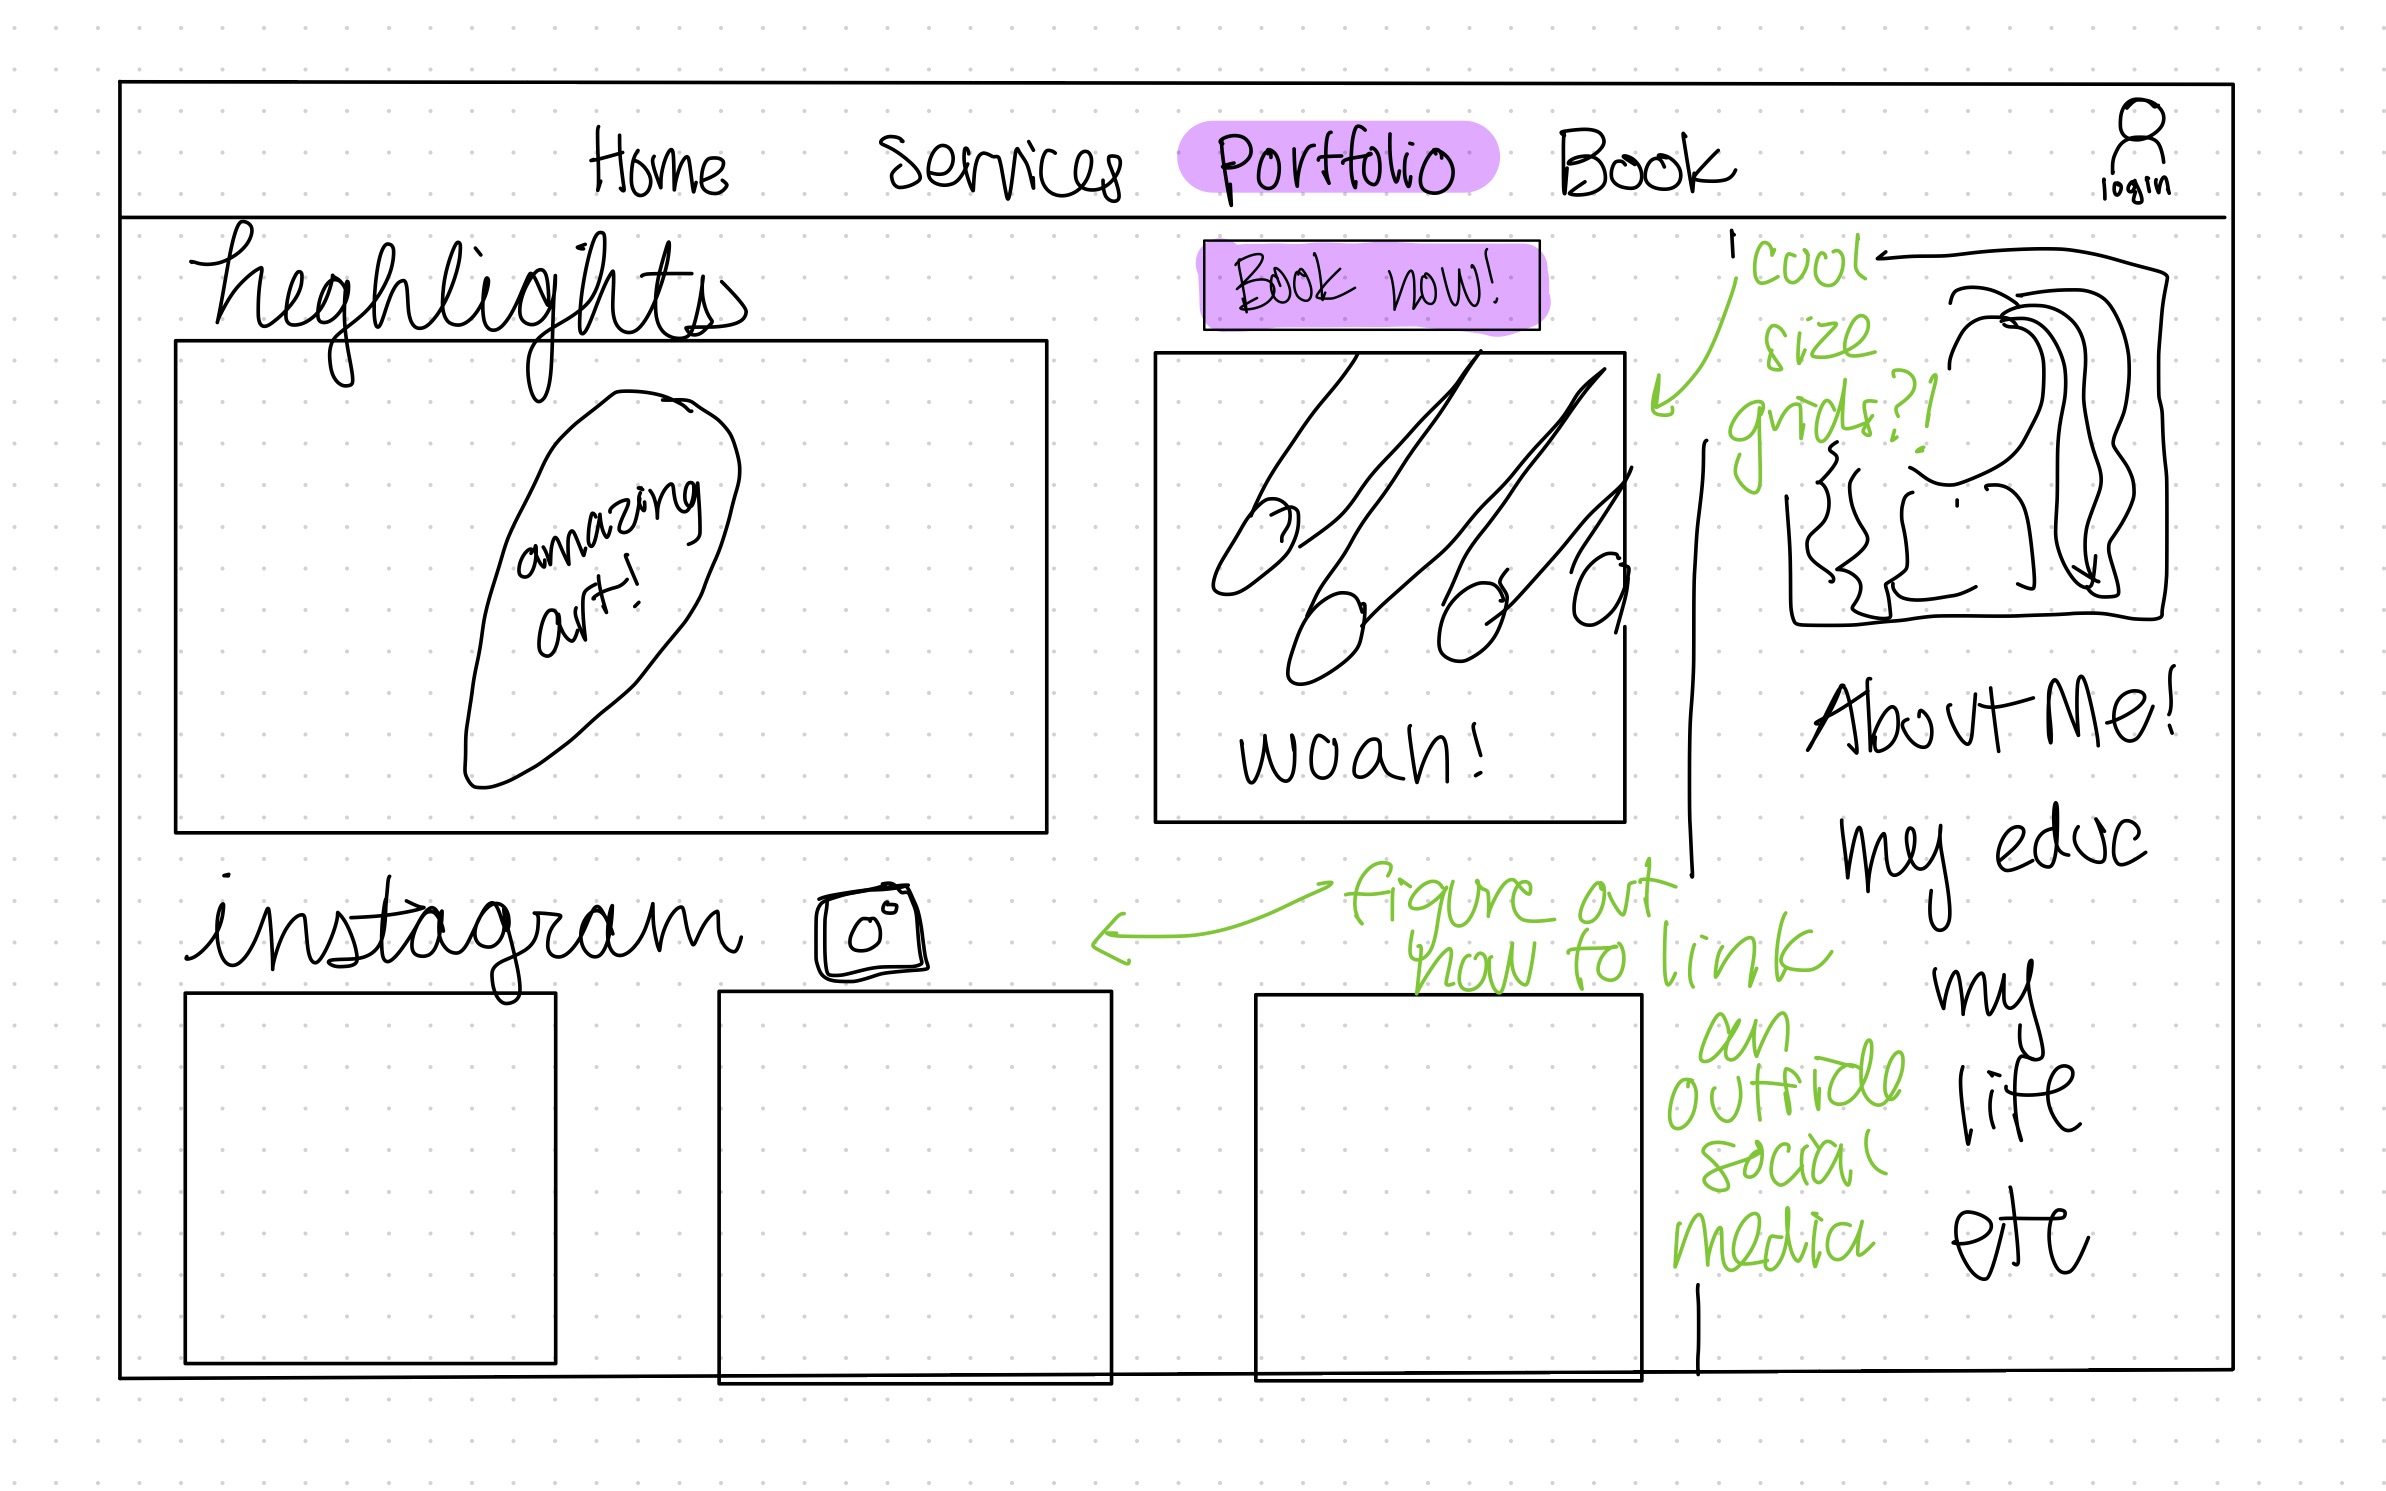 Home Services Portfolio Book
login
highlights
Book now!
cool
size
grids?!
amazing
art!
woah!
About Me!
my educ
my
life
etc
instagram
figure out
how to link
an
outside
social
media